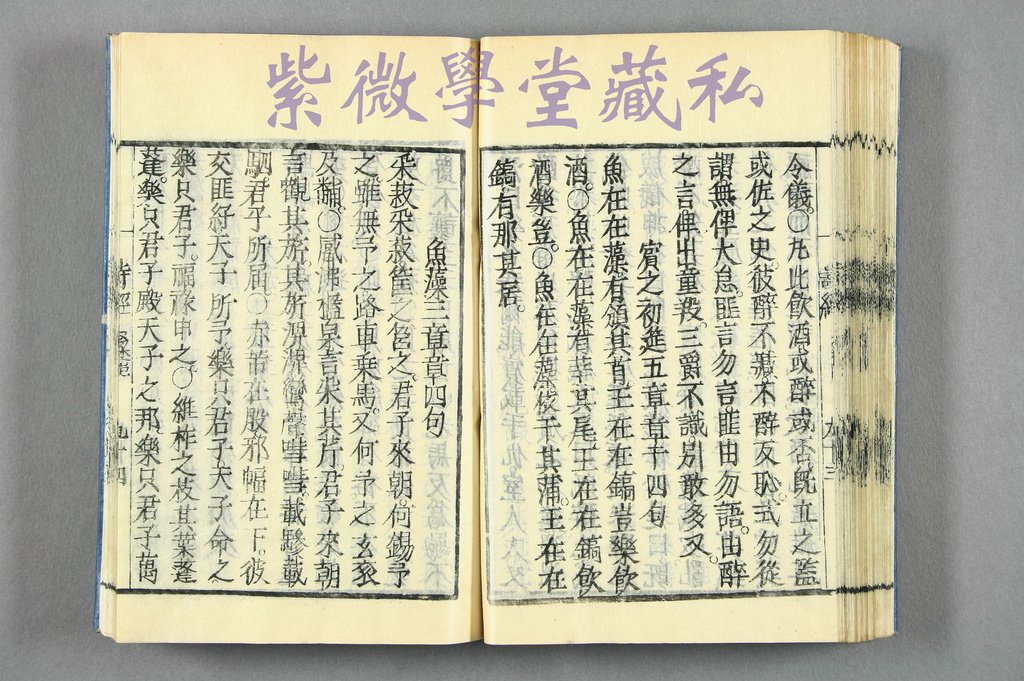 紫微學堂藏私
詩經 九十三
令儀。〇凡此飲酒或醉或否既立之監
或佐之史。彼醉不臧不醉反恥。式勿從
謂無俾大怠匪言勿言。匪由勿語。由醉
之言俾出童羖。三爵不識矧敢多又。
賓之初筵五章章十四句
魚在在藻有頒其首王在在鎬豈樂飲
酒。〇魚在在藻有莘其尾王在在鎬飲
酒樂豈。〇魚在在藻依于其蒲。王在在
鎬。有那其居。
魚藻三章章四句
采菽采菽筐之筥之。君子來朝。何錫予
之。雖無予之路車乘馬。又何予之玄袞
及黼。〇觱沸檻泉言采其芹。君子來朝
言觀其旂其旂淠淠鸞聲嘒嘒。載驂載
駟。君子所屆〇赤芾在股邪幅在下。彼
交匪紓天子所予。樂只君子。天子命之
樂只君子。福祿申之。〇維柞之枝其葉蓬
蓬。樂只君子殿天子之邦。樂只君子萬
詩經 九十四